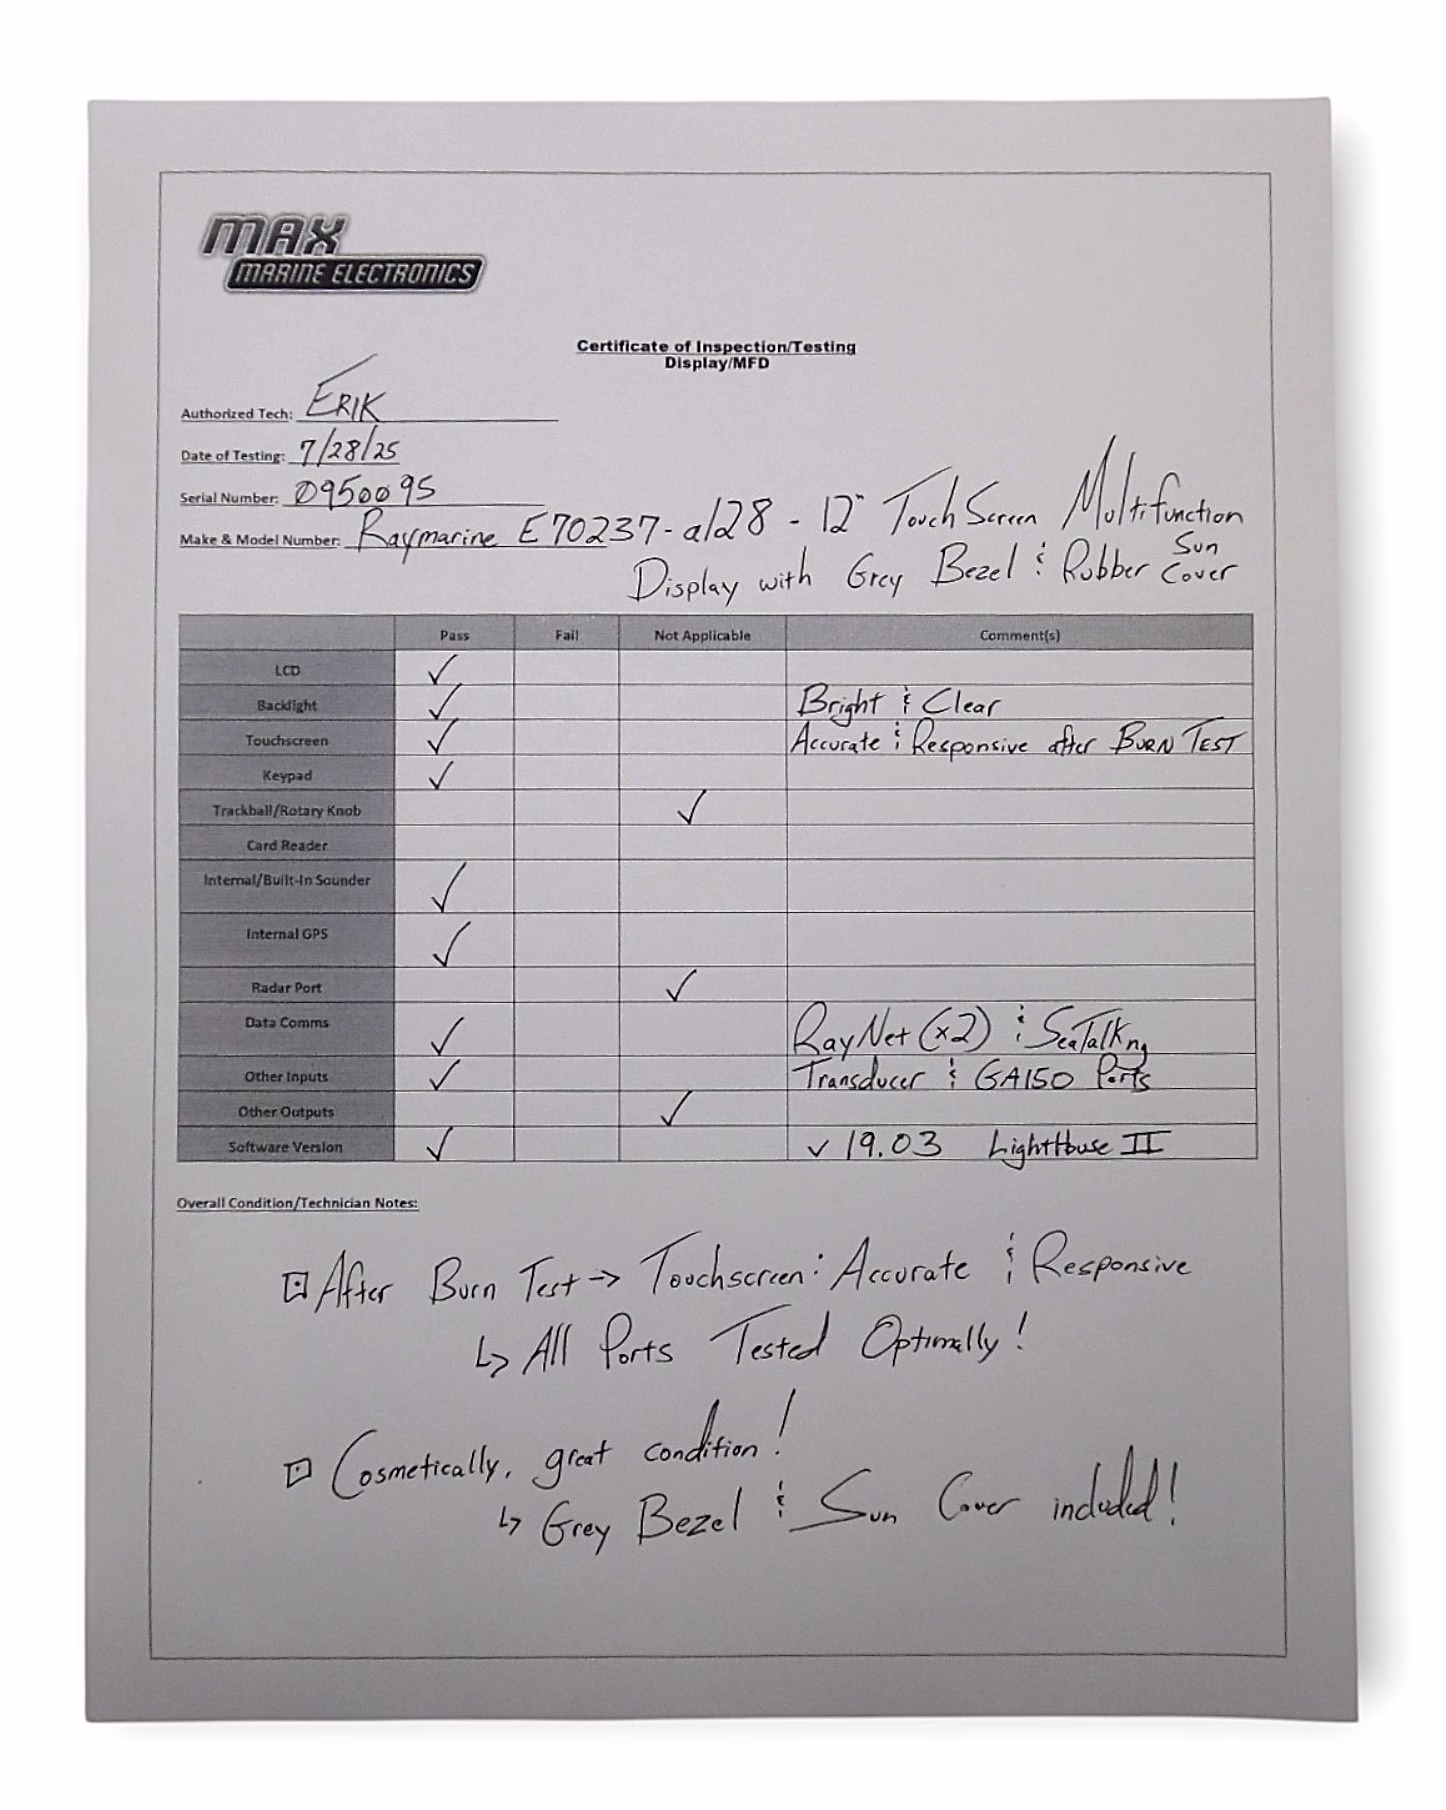 MAX
MARINE ELECTRONICS
Certificate of Inspection/Testing
Display/MFD
Authorized Tech: ERIK
Date of Testing: 7/28/25
Serial Number: 0950095
Make & Model Number: Raymarine E70237-a128 - 12" TouchScreen Multifunction
Display with Grey Bezel & Rubber Sun Cover
Pass Fail Not Applicable Comment(s)
LCD ✓
Backlight ✓ Bright & Clear
Touchscreen ✓ Accurate & Responsive after BURN TEST
Keypad ✓
Trackball/Rotary Knob ✓
Card Reader
Internal/Built-In Sounder ✓
Internal GPS ✓
Radar Port ✓
Data Comms ✓ RayNet (x2) & SeaTalkng
Other Inputs ✓ Transducer & GA150 Ports
Other Outputs ✓
Software Version ✓ v19.03 LightHouse II
Overall Condition/Technician Notes:
After Burn Test → Touchscreen: Accurate & Responsive
↳ All Ports Tested Optimally!
Cosmetically, great condition!
↳ Grey Bezel & Sun Cover included!